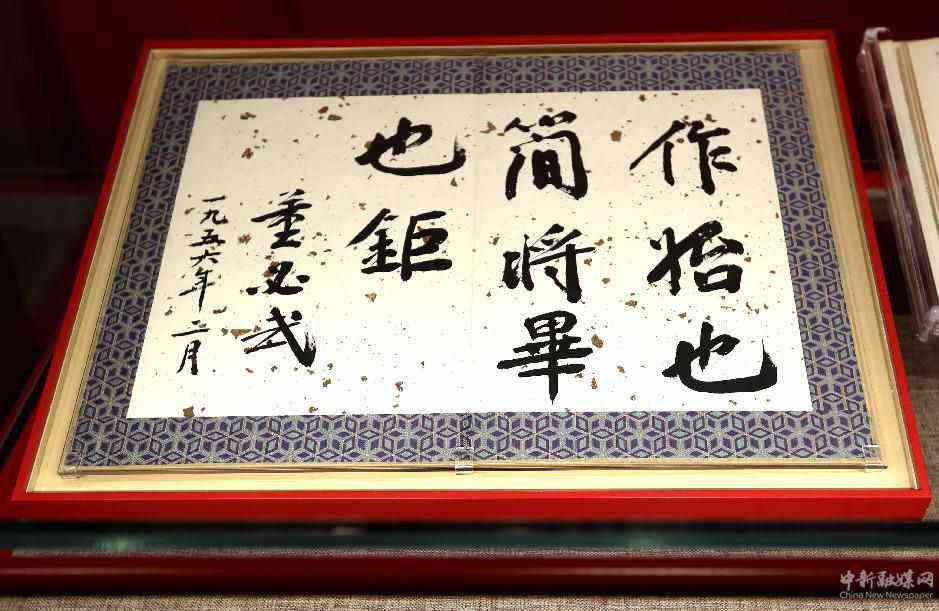 作始也
簡將畢
也鉅
董必武
一九五六年二月
中新融媒网
China New Newspaper